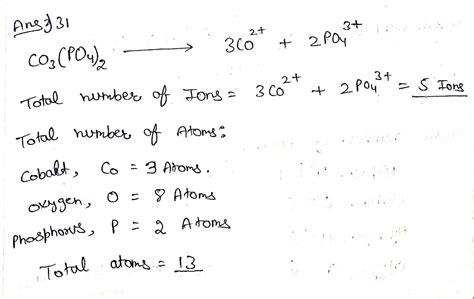 Ans:) 31
CO₃(PO₄)₂ ⟶ 3CO²⁺ + 2PO₄³⁺
Total number of Ions = 3CO²⁺ + 2PO₄³⁺ = 5 Ions
Total number of Atoms:
Cobalt, Co = 3 Atoms.
oxygen, O = 8 Atoms
Phosphorus, P = 2 Atoms
Total atoms = 13